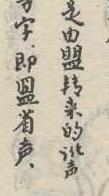 是由盟转来的谐声
字.即盟省声、